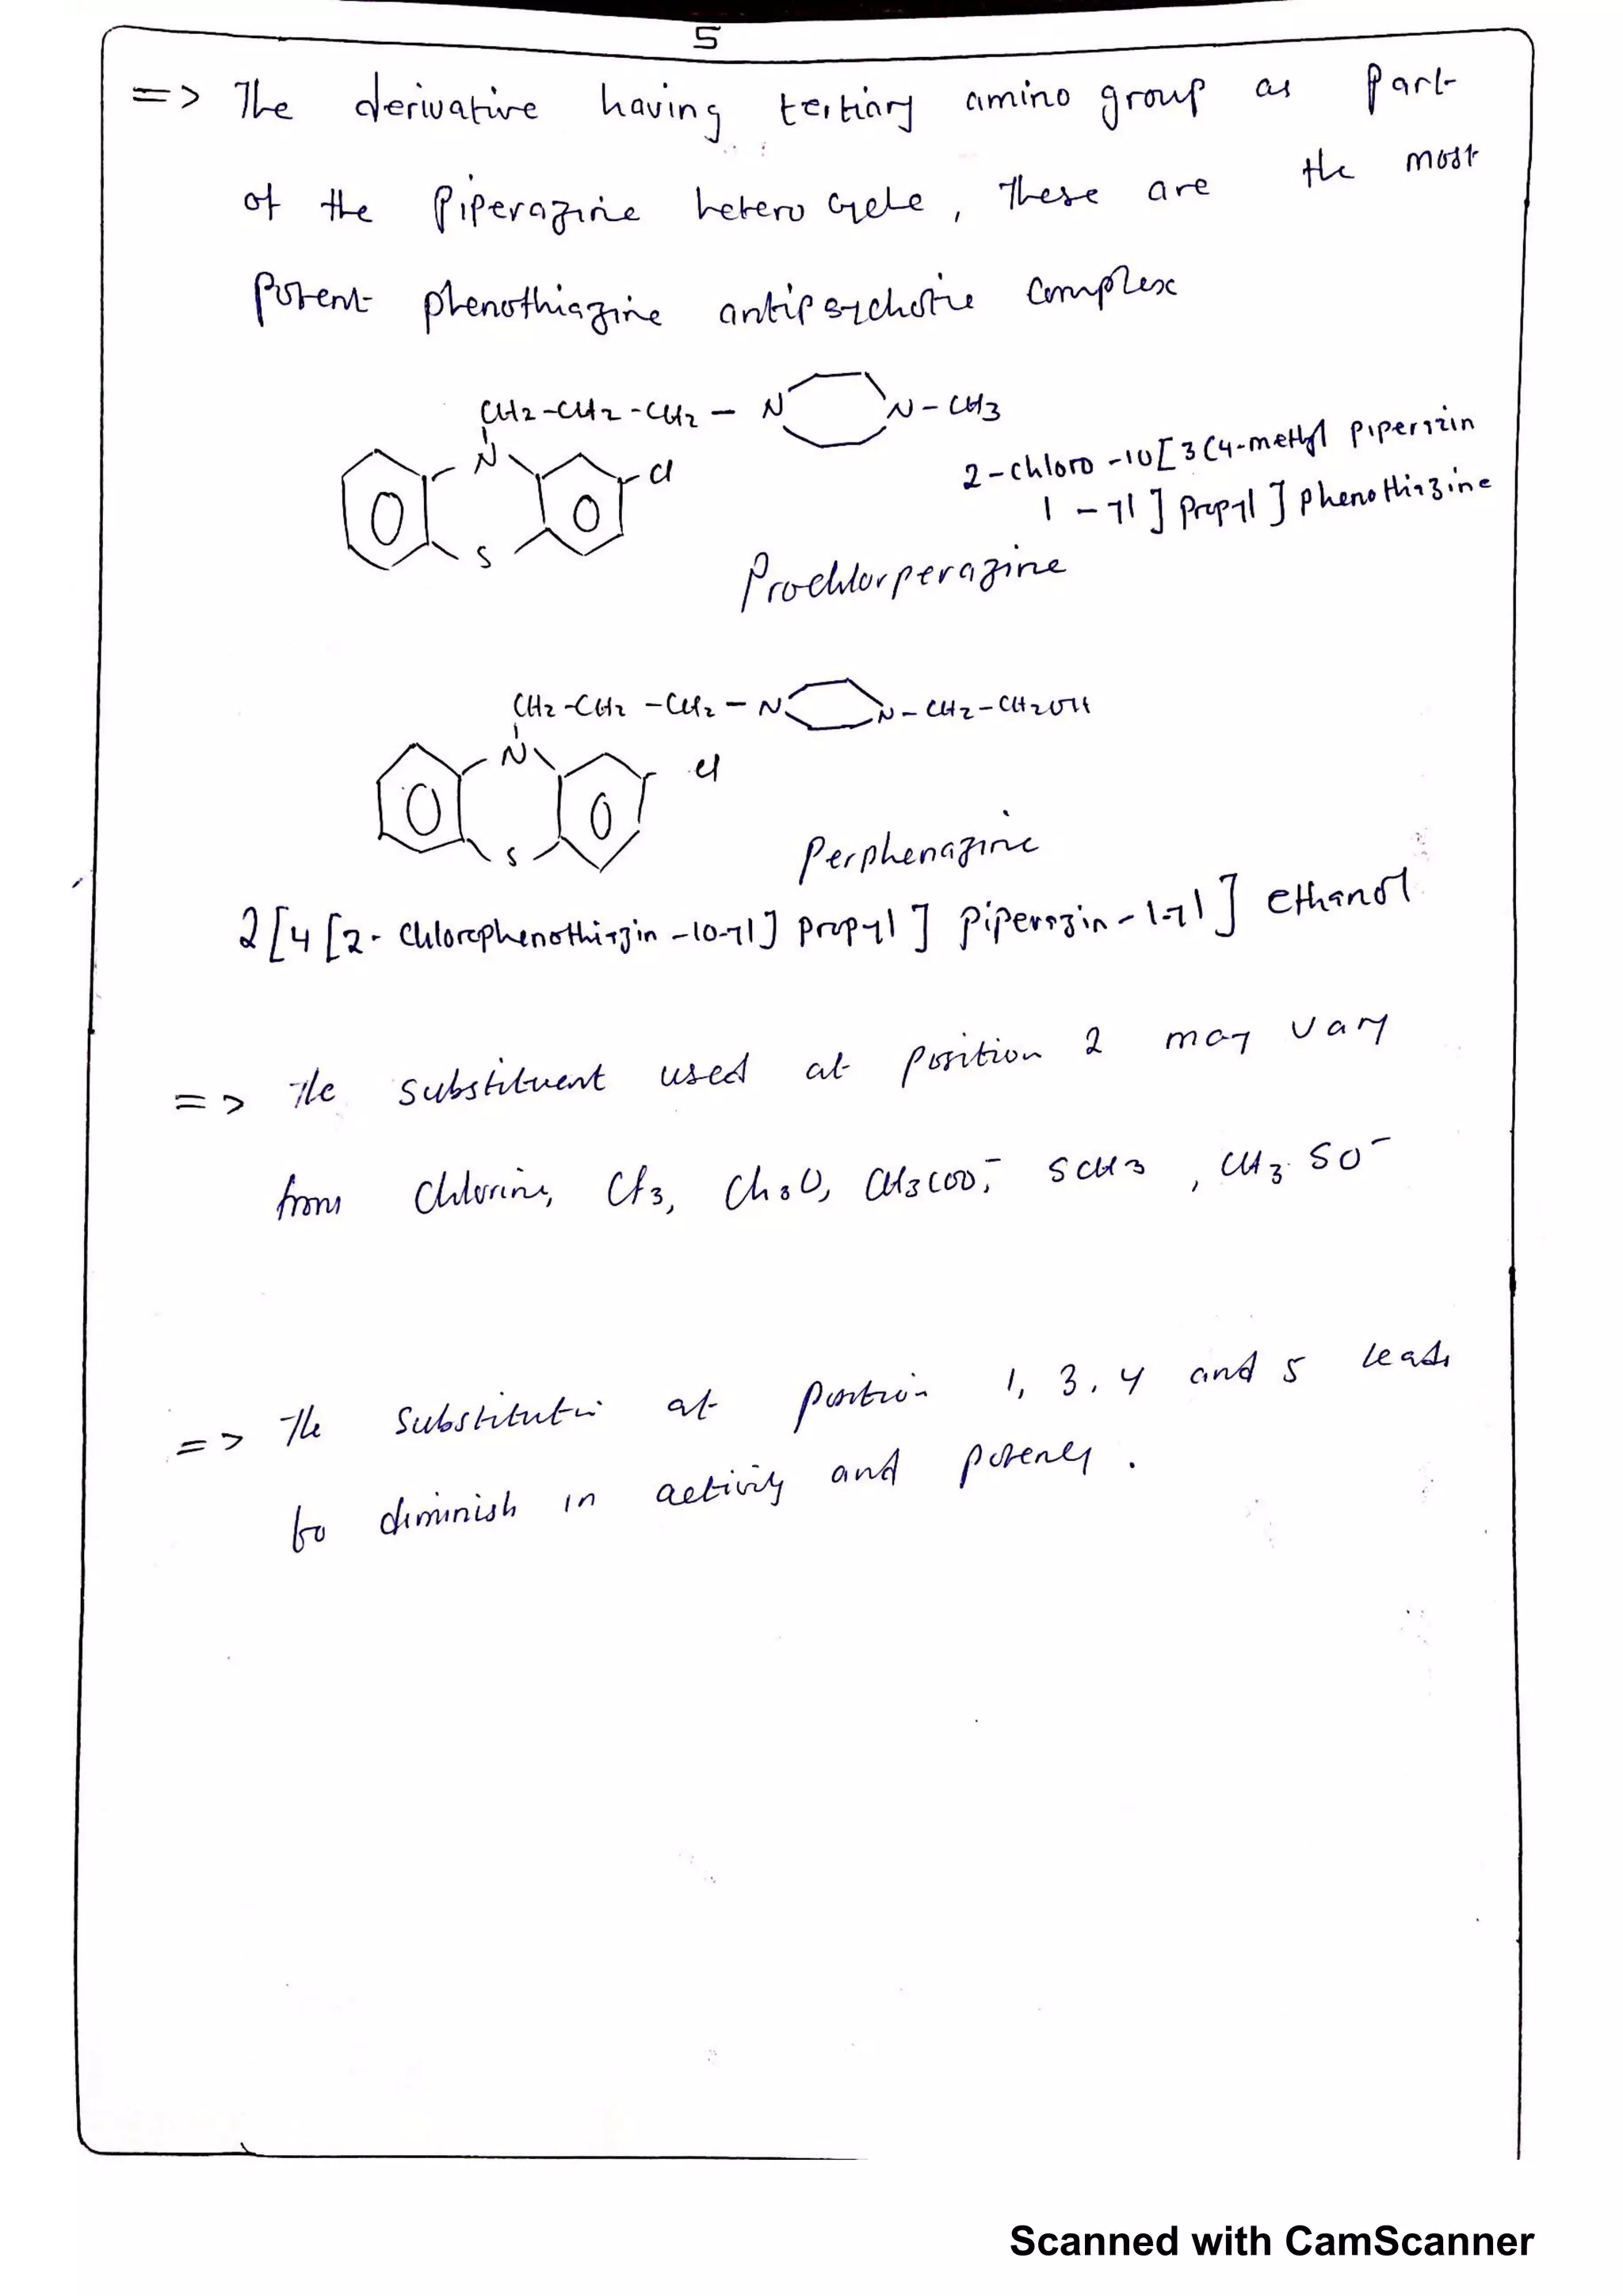 5
=> The derivative having tertiary amino group as part
of the Piperazine hetero cycle, These are the most
Potent phenothiazine antipsychotic Complex
CH2-CH2-CH2-N N-CH3
N
Cl
S
2-chloro-10[3(4-methyl piperazin
1-yl] propyl] phenothiazine
Prochlorperazine
CH2-CH2-CH2-N N-CH2-CH2OH
N
Cl
S
Perphenazine
2[4[2-Chlorophenothiazin-10-yl] propyl] piperazin-1-yl] ethanol
=> The substituent used at position 2 may vary
from Chlorine, Cf3, Ch3O, CH3COO-, SCH3, CH3SO-
=> The Substitution at position 1, 3, 4 and 5 leads
to diminish in activity and potency.
Scanned with CamScanner